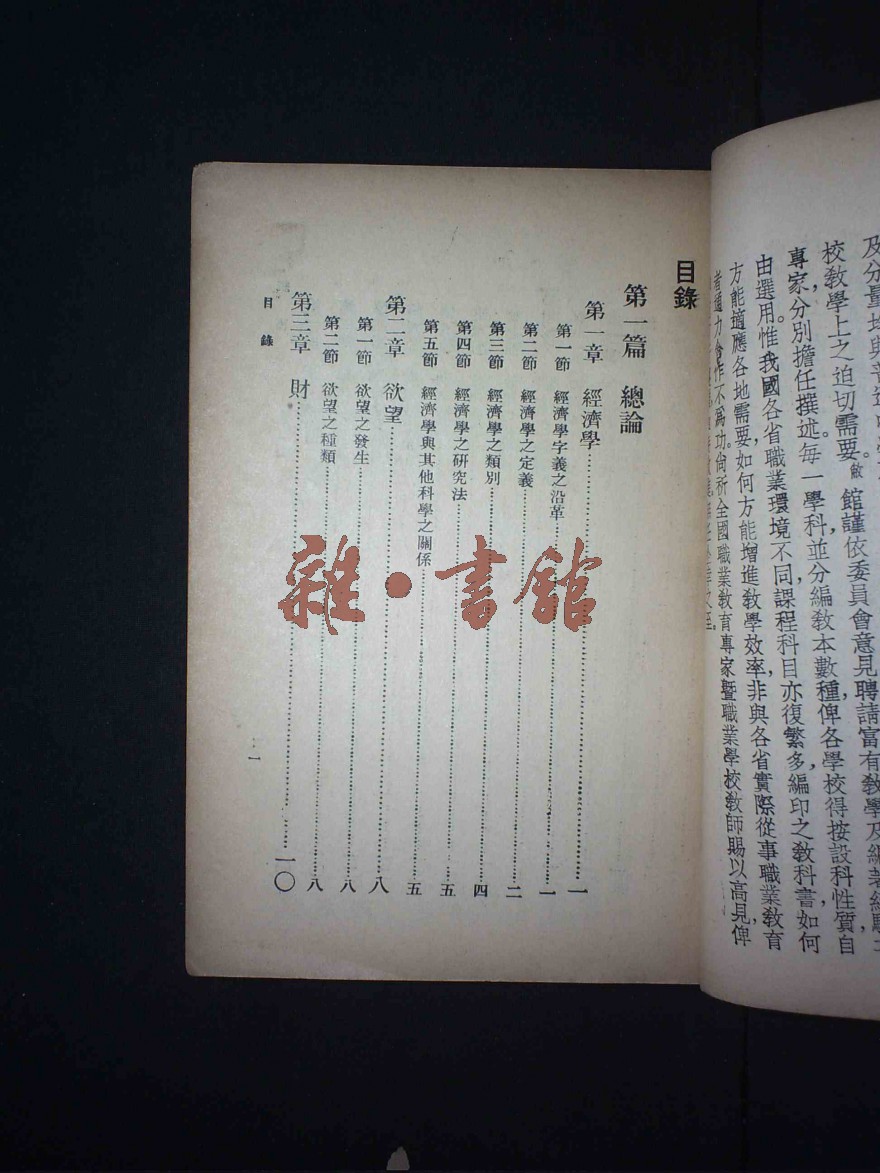 校教學上之迫切需要。敝館謹依委員會意見,聘請富有教學及編著經驗
專家,分別擔任撰述。每一學科,並分編教本數種,俾各學校得按設科性質自
由選用。惟我國各省職業環境不同,課程科目亦復繁多,編印之教科書如何
方能適應各地需要,如何方能增進教學效率,非與各省實際從事職業教育
者通力合作不爲功。尚祈全國職業教育專家暨職業學校教師賜以高見,俾
目錄
第一篇 總論
第一章 經濟學……一
第一節 經濟學字義之沿革……一
第二節 經濟學之定義……二
第三節 經濟學之類別……四
第四節 經濟學之研究法……五
第五節 經濟學與其他科學之關係……五
第二章 欲望……八
第一節 欲望之發生……八
第二節 欲望之種類……八
第三章 財……一〇
目錄
一
雜·書館